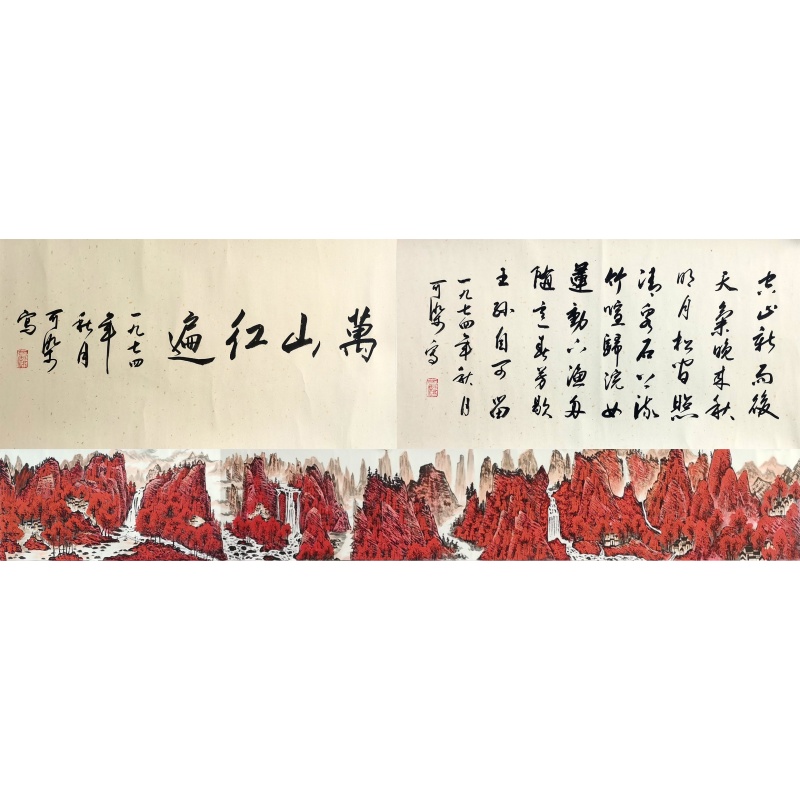 萬山红遍
一九七四
年
秋月
可染
寫
空山新雨後
天氣晚来秋
明月松间照
清泉石上流
竹喧歸浣女
蓮動下渔舟
随意春芳歇
王孫自可留
一九七四年秋月
可染寫